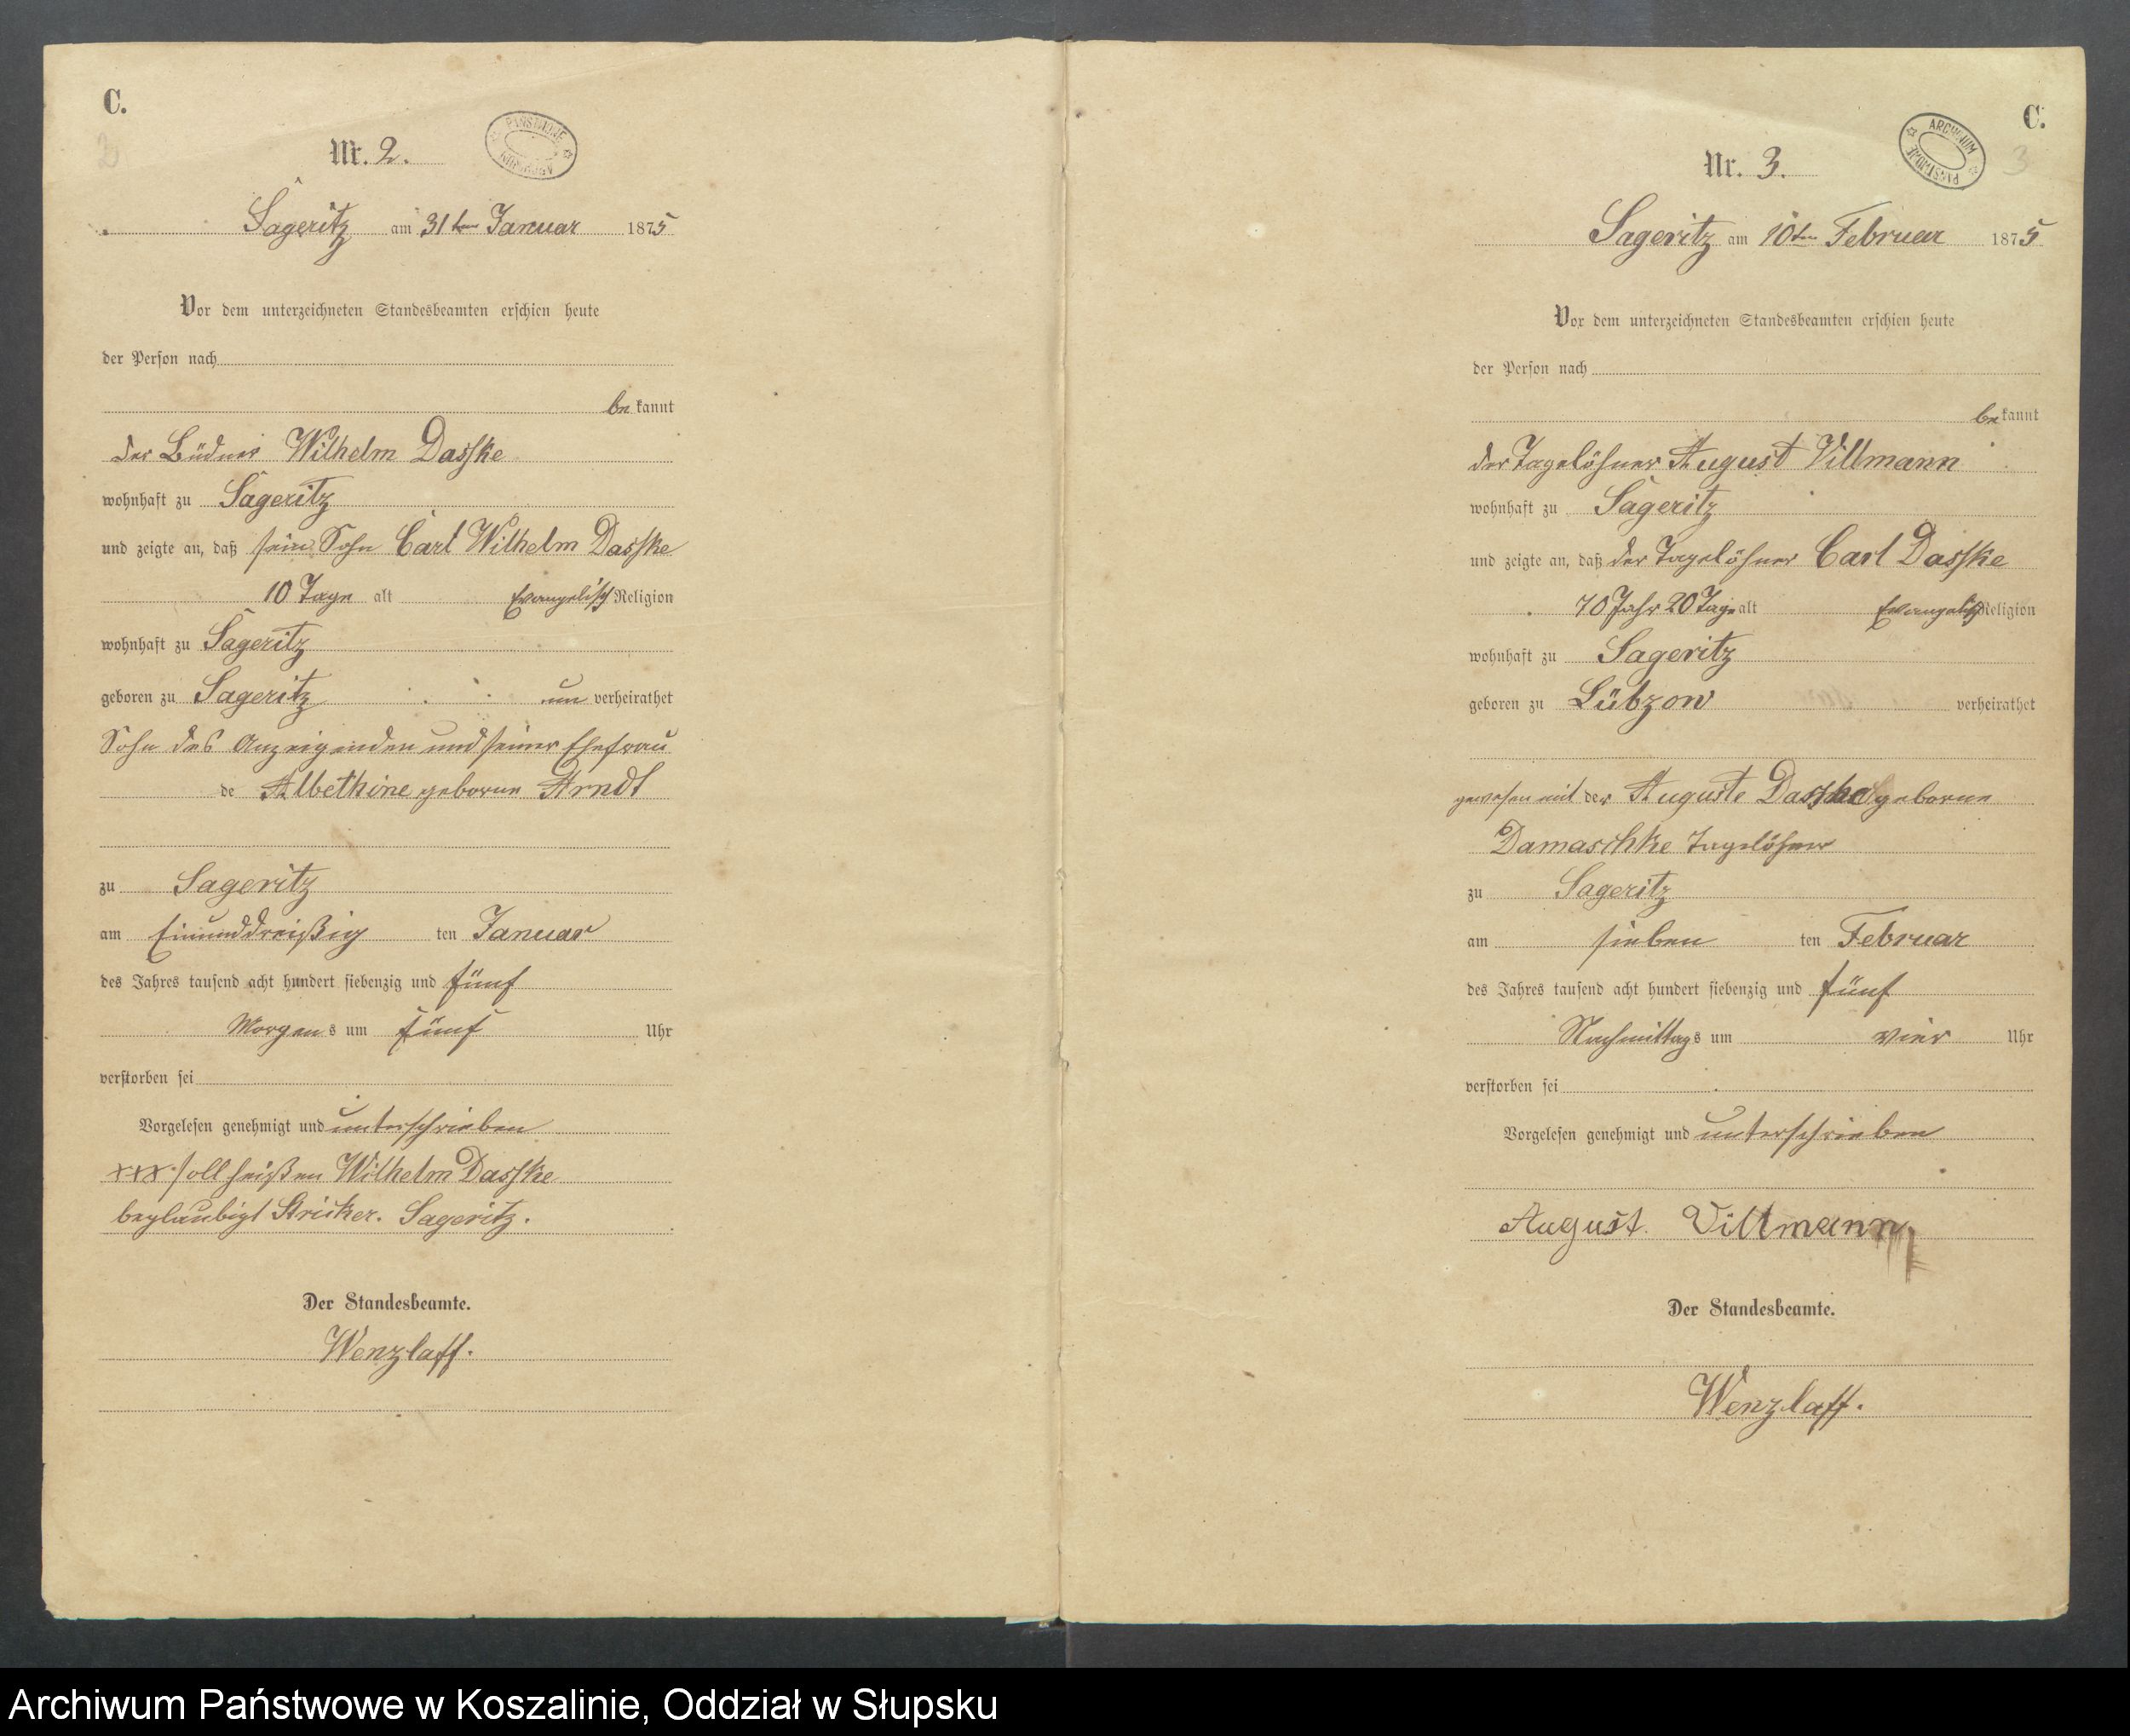 C.
2
Nr. 2.
Sageritz am 31ten Januar 1875
Vor dem unterzeichneten Standesbeamten erschien heute
der Person nach
be kannt
der Büdner Wilhelm Dasske
wohnhaft zu Sageritz
und zeigte an, daß sein Sohn Carl Wilhelm Dasske
10 Tage alt Evangelisch Religion
wohnhaft zu Sageritz
geboren zu Sageritz un verheirathet
Sohn des Anzeigenden und seiner Ehefrau
de Albethine geborne Arndt
zu Sageritz
am Einunddreißig ten Januar
des Jahres tausend acht hundert siebenzig und fünf
Morgens um fünf Uhr
verstorben sei
Vorgelesen genehmigt und unterschrieben
xxx soll heißen Wilhelm Dasske
beglaubigt Stricker. Sageritz.
Der Standesbeamte.
Wenzlaff.
C.
3
ARCHIWUM PAŃSTWOWE
Nr. 3.
Sageritz am 10ten Februar 1875
Vor dem unterzeichneten Standesbeamten erschien heute
der Person nach
be kannt
der Tagelöhner August Villmann
wohnhaft zu Sageritz
und zeigte an, daß der Tagelöhner Carl Dasske
70 Jahr 20 Tage alt Evangelisch Religion
wohnhaft zu Sageritz
geboren zu Lübzow verheirathet
gewesen mit der Auguste Dasske geborne
Damaschke Tagelöhner
zu Sageritz
am sieben ten Februar
des Jahres tausend acht hundert siebenzig und fünf
Nachmittags um vier Uhr
verstorben sei
Vorgelesen genehmigt und unterschrieben
August. Villmann
Der Standesbeamte.
Wenzlaff.
Archiwum Państwowe w Koszalinie, Oddział w Słupsku